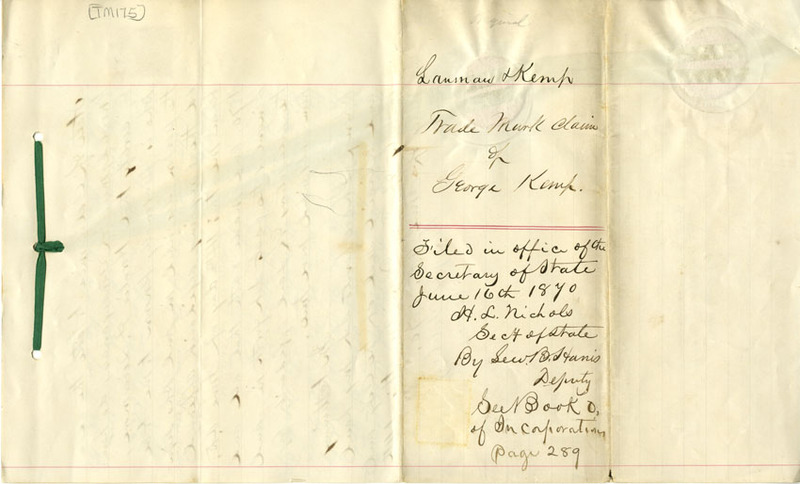 [TM175]
Lanman & Kemp
Trade Mark Claim
of
George Kemp.
Filed in office of the
Secretary of State
June 16th 1870
H. L. Nichols
Sect of State
By Lew. B. Harris
Deputy
See Book D.
of Incorporations
page 289